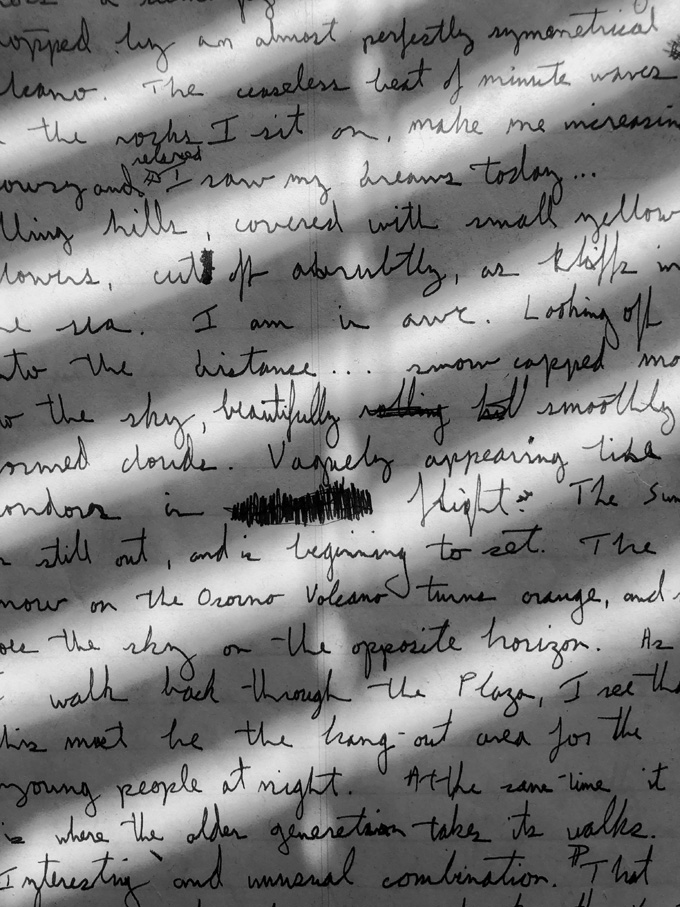 opped by an almost perfectly symmetrical
lcano. The ceaseless beat of minute waves
the rocks I sit on, make me increasin
relaxed
owsy and I saw my dreams today...
lling hills, covered with small yellow
lowers, cut off abrubtly, as kliffs in
he sea. I am in awe. Looking off
nto the distance.... snow capped mo
w the sky, beautifully rolling smoothly
ormed clouds. Vaguely appearing like
ondors in flight. The sun
still out, and is beginning to set. The
now on the Osorno Volcano turns orange, and
the sky on the opposite horizon. As
I walk back through the Plaza, I see tha
his must be the hang-out area for the
young people at night. At the same time it
is where the older generation takes its walks.
Interesting and unusual combination. That